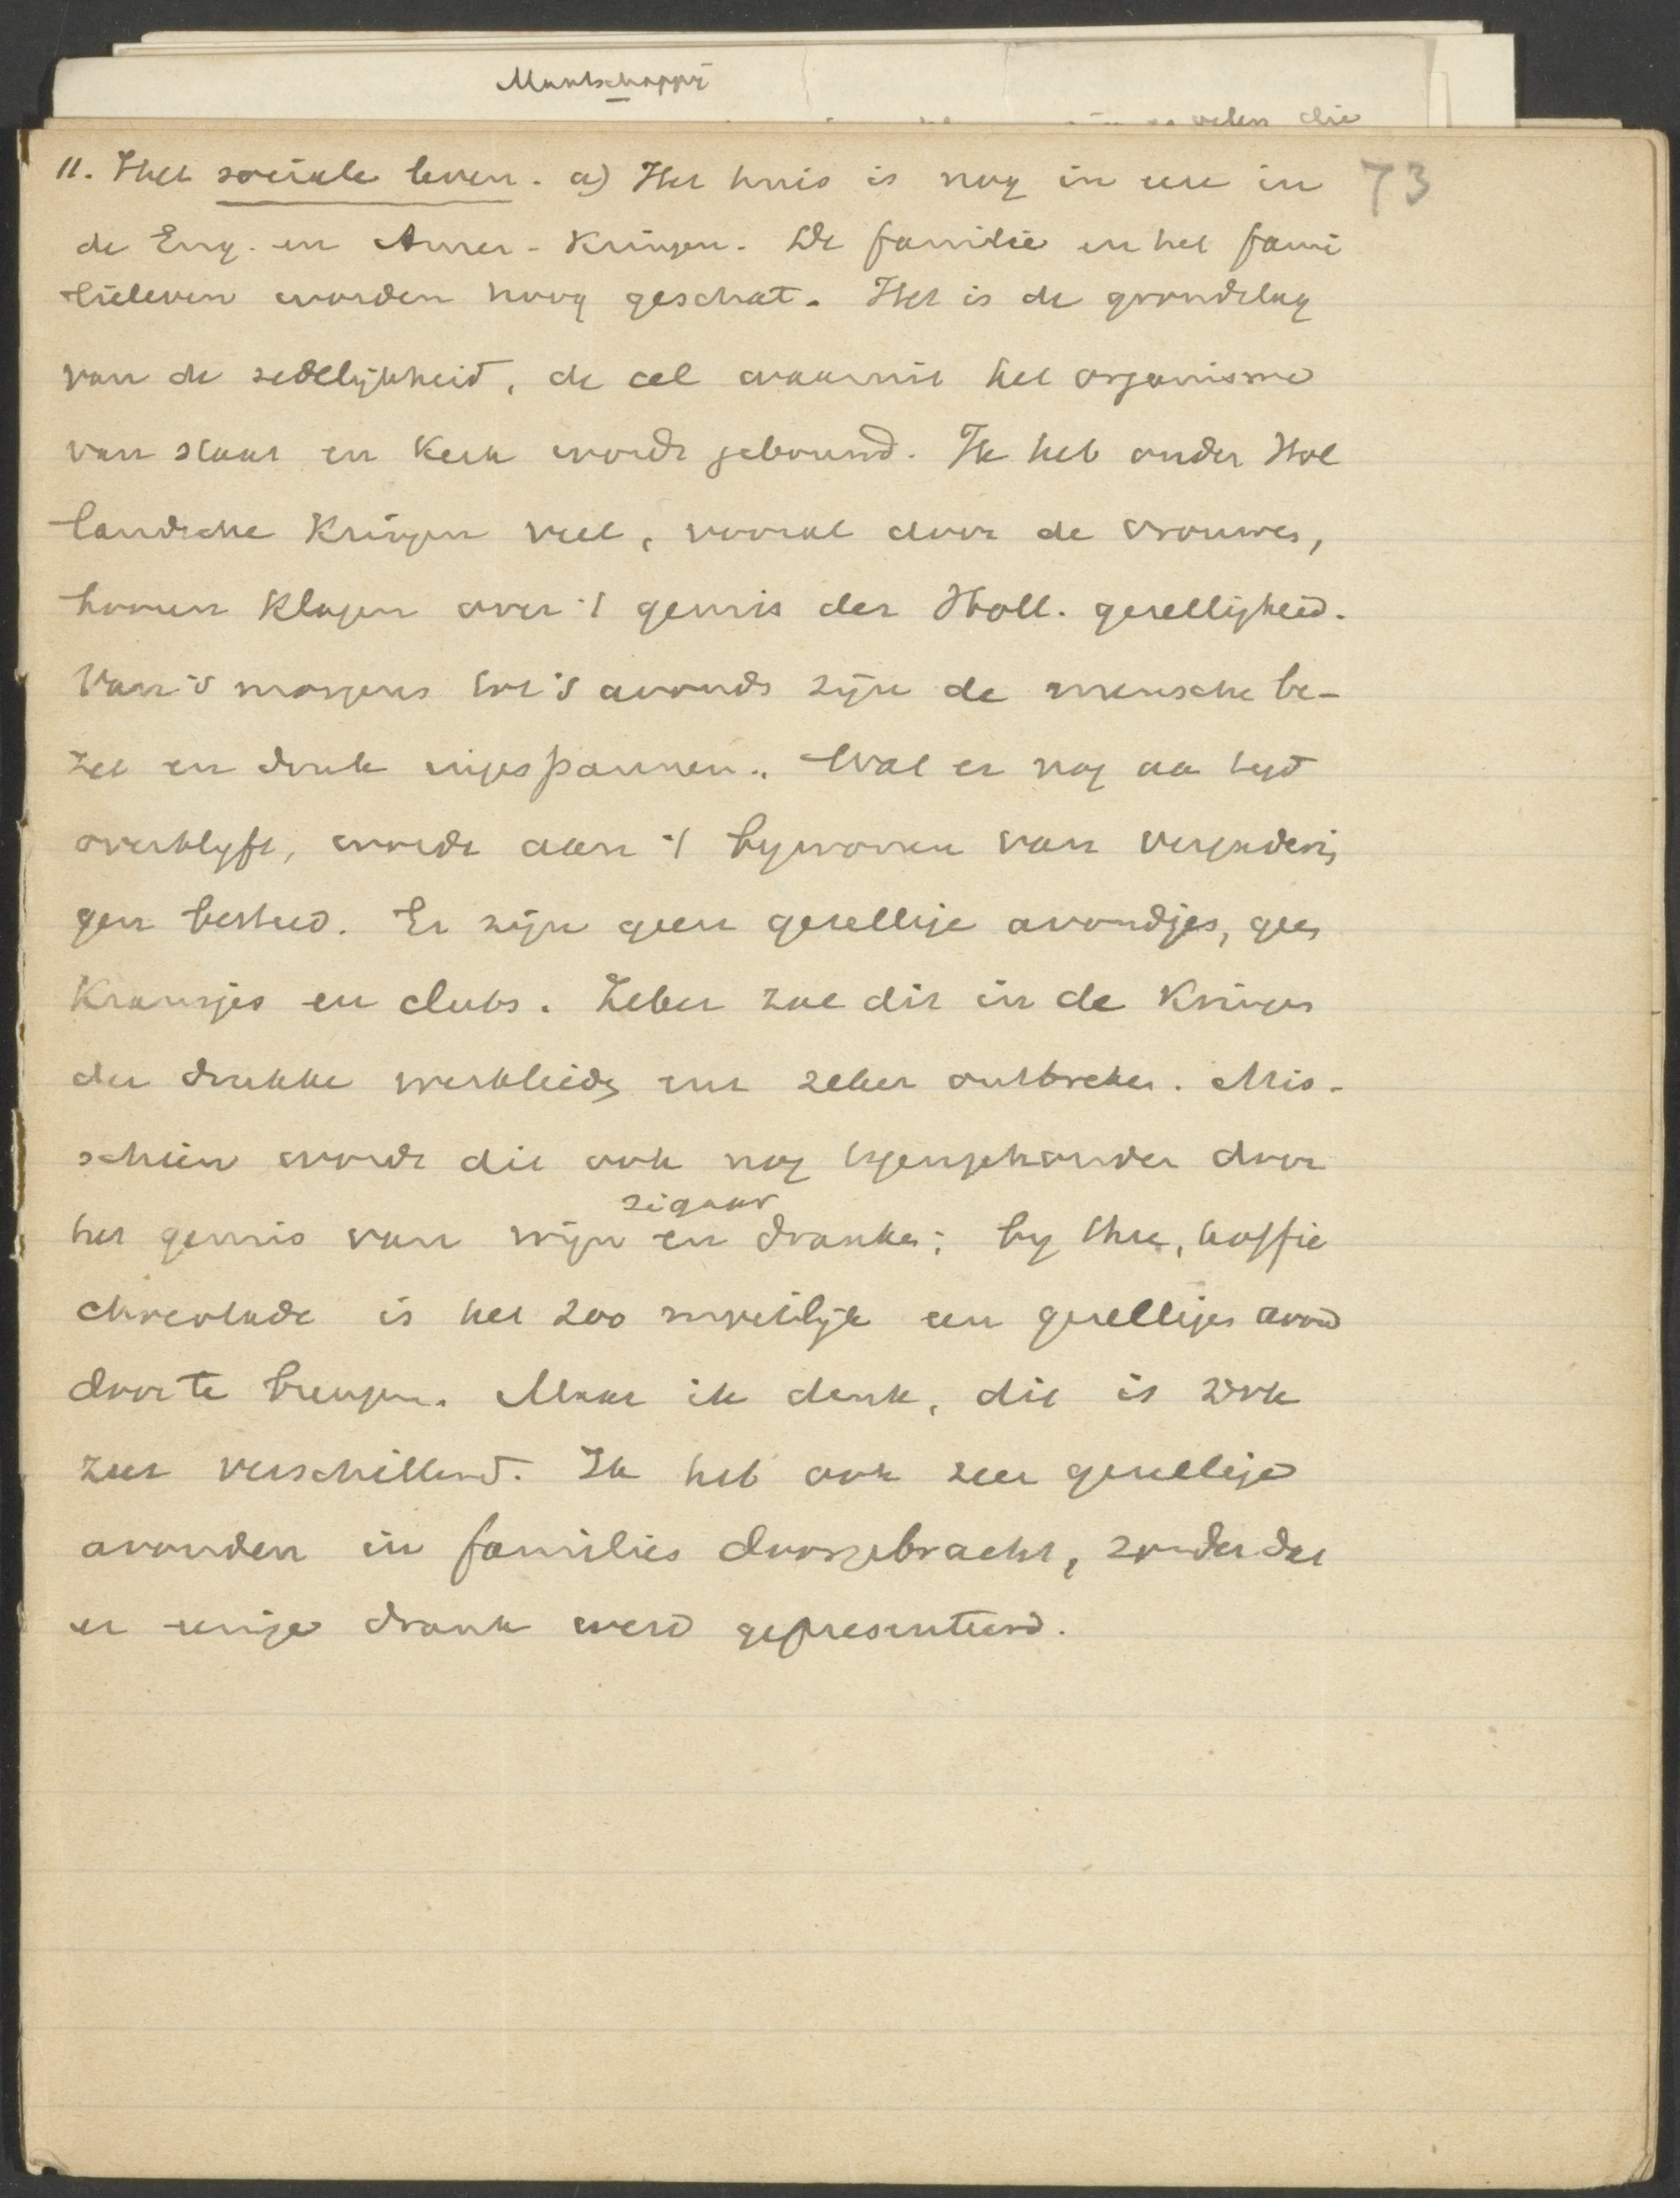 Maatschappij
velen die
73
11. Het sociale leven. a) Het huis is nog in eere in
de Eng. en Amer. Kringen. De familie en het fami
lieleven worden hoog geschat. Het is de grondslag
van de zedelijkheid, de cel waaruit het organisme
van staat en Kerk wordt gebouwd. Ik heb onder Hol
landsche Kringen veel, vooral door de vrouwen,
hooren Klagen over 't gemis der Holl. gezelligheid.
Van 's morgens tot 's avonds zijn de mensche be-
zet en druk ingespannen. Wat er nog aa tyd
overblyft, wordt aan 't bywonen van vergaderin
gen besteed. Er zijn geen gezellige avondjes, geen
Kransjes en clubs. Zeker zal dit in de Kringen
der drukke werklieden zeker ontbreken. Mis-
schien wordt dit ook nog tegengehouden door
zigaar
het gemis van wijn en dranken; by thee, koffie
chocolade is het zoo moeilijk een gezelligen avond
door te brengen. Maar ik denk, dit is ook
zeer verschillend. Ik heb ook zeer gezellige
avonden in families doorgebracht, zonder dat
er eenige drank werd gepresenteerd.